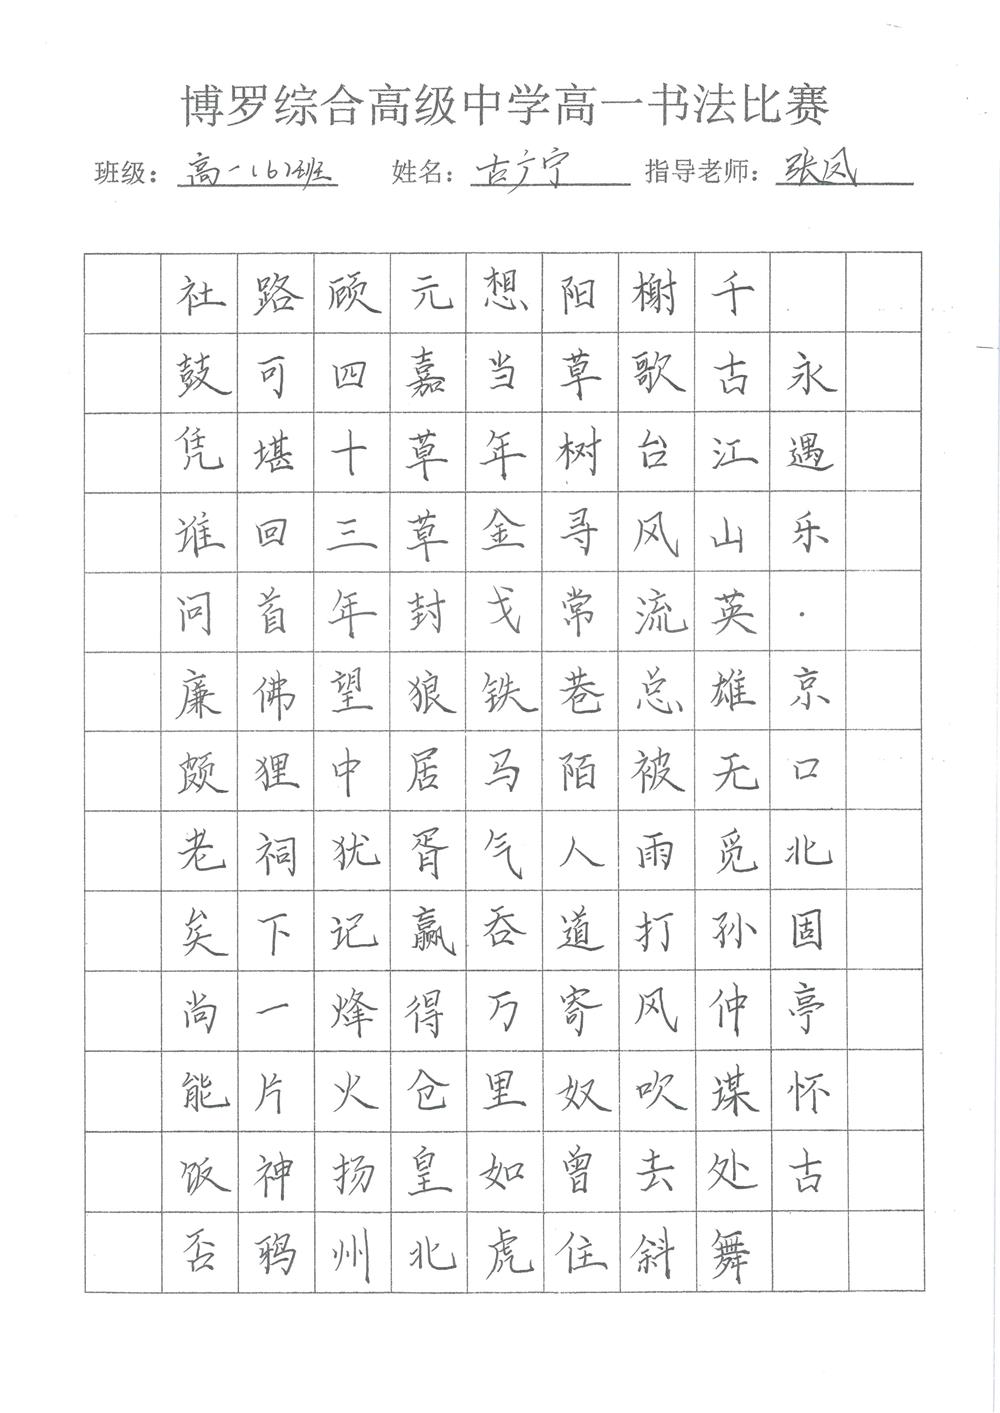 博罗综合高级中学高一书法比赛
班级：高一(6)班 姓名：古广宁 指导老师：张凤
永遇乐·京口北固亭怀古
千古江山英雄无觅孙仲谋处舞
榭歌台风流总被雨打风吹去斜
阳草树寻常巷陌人道寄奴曾住
想当年金戈铁马气吞万里如虎
元嘉草草封狼居胥赢得仓皇北
顾四十三年望中犹记烽火扬州
路可堪回首佛狸祠下一片神鸦
社鼓凭谁问廉颇老矣尚能饭否